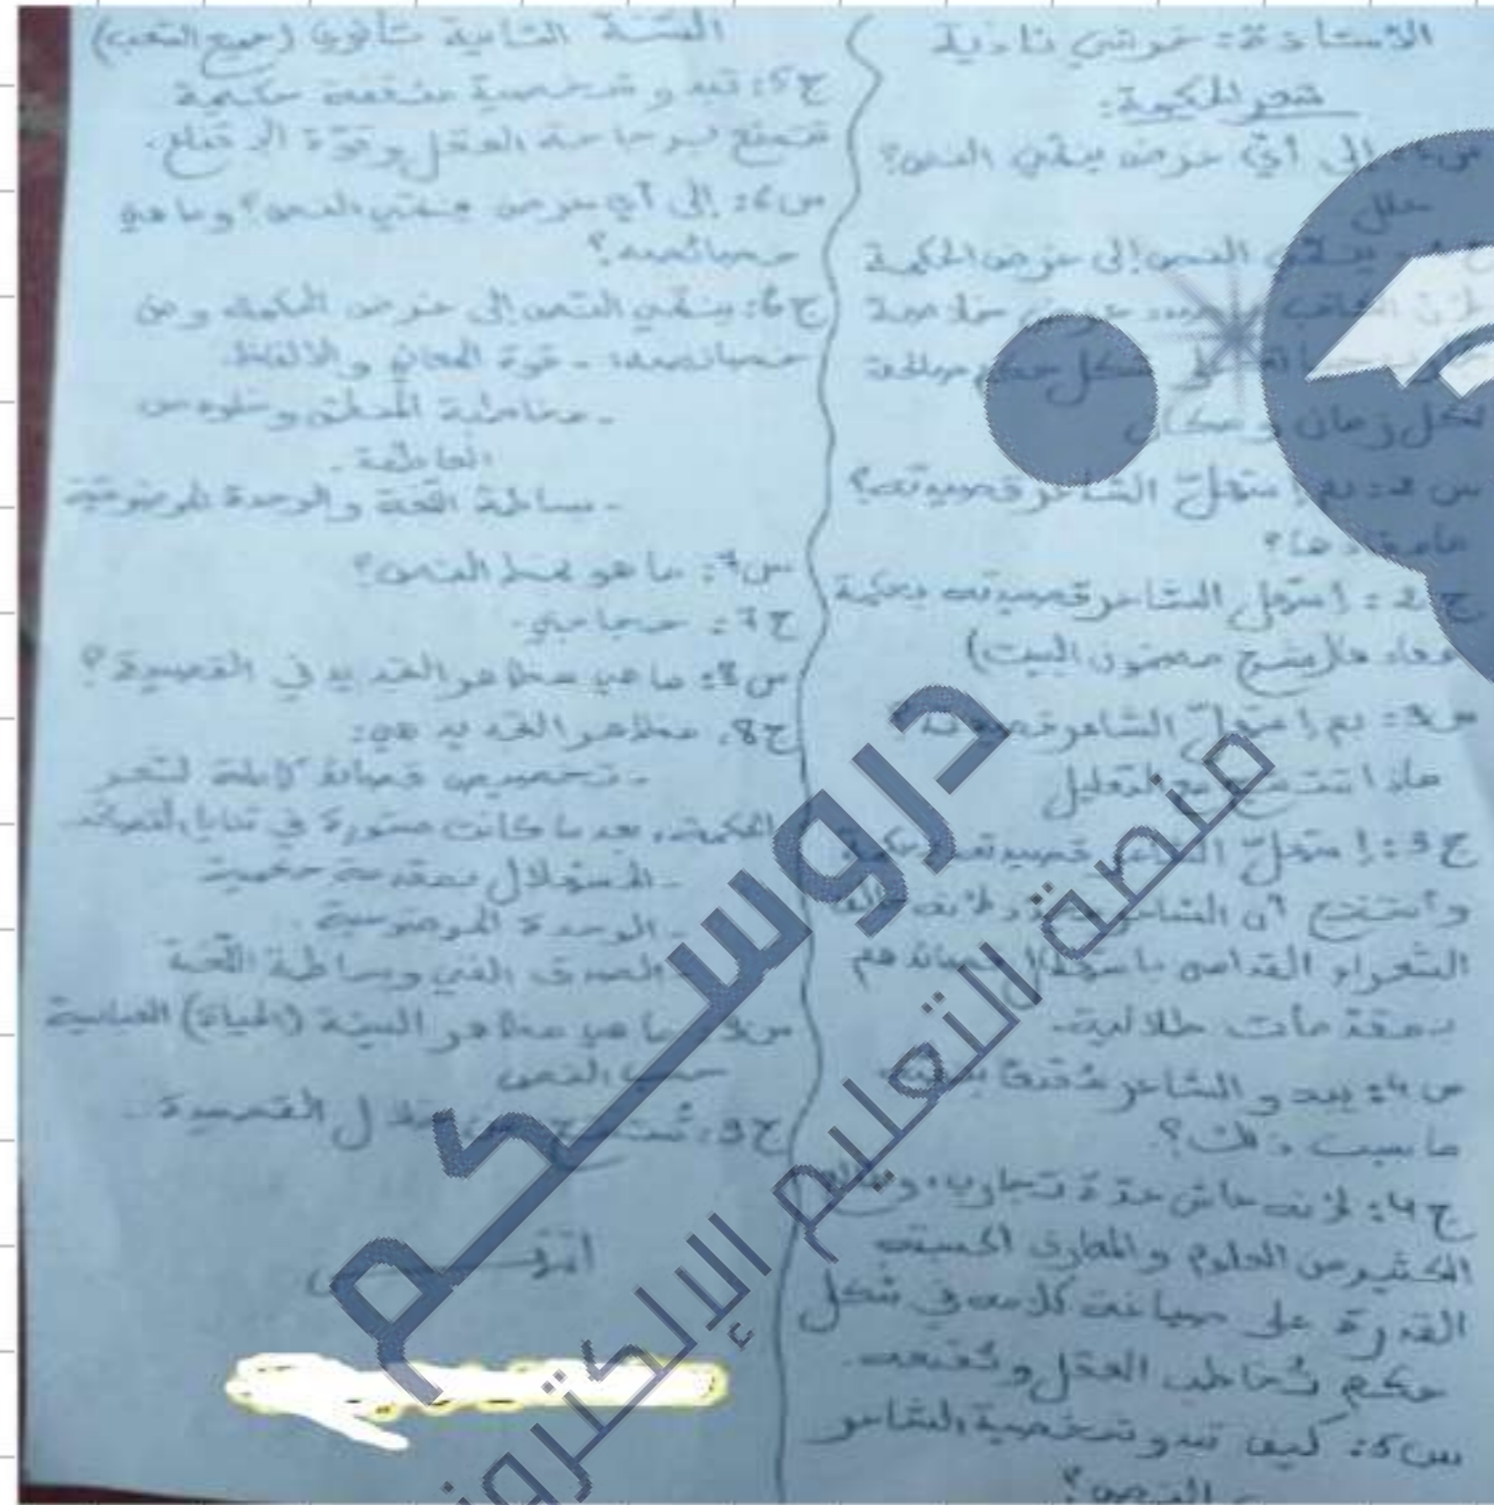 الأستاذة: خرشي نادية
شعر الحكمة:
إلى أيّ غرض ينتمي النص؟
علل
ينتمي النص إلى غرض الحكمة
لأن خلاصة
على شكل حكم صالحة
لكل زمان ومكان
س2: بم استهلّ الشاعر قصيدته؟
ما مفادها؟
ج2: استهل الشاعر قصيدته بحكمة
مفادها (شرح مضمون البيت)
س3: بم استهلّ الشاعر قصيدته
ماذا تستنتج مع التعليل
ج3: استهلّ الشاعر قصيدته بحكمة
وأستنتج أن الشاعر مجدد لأنه خالف
الشعراء القدامى باستهلال قصائدهم
بمقدمات طللية.
س4: يبدو الشاعر
ما سبب ذلك؟
ج4: لأنه عاش عدة تجارب،
الكثير من العلوم والمعارف اكسبته
القدرة على صياغة كلامه في شكل
حكم تُخاطب العقل وتُقنعه.
س5: كيف تبدو شخصية الشاعر
النص؟
السنة الثانية ثانوي (جميع الشعب)
ج5: تبدو شخصية حكيمة
تتمتع برجاحة العقل وقوة الإقناع.
س6: إلى أي غرض ينتمي النص؟ وما هي
خصائصه؟
ج6: ينتمي النص إلى غرض الحكمة ومن
خصائصه: - قوة المعاني والألفاظ
- مخاطبة
العاطفة.
- بساطة اللغة والوحدة الموضوعية
س7: ما هو نمط النص؟
ج7: حجاجي.
س8: ما هي مظاهر التجديد في القصيدة؟
ج8: مظاهر التجديد هي:
- تخصيص قصائد كاملة لشعر
الحكمة، بعدما كانت منثورة في ثنايا القصائد
- الاستهلال بمقدمة حكمية
- الوحدة الموضوعية.
الصدق الفني وبساطة اللغة
س9: ما هي مظاهر البيئة (الحياة) العباسية
حسب النص
ج9: تُستنتج من خلال القصيدة.
انتهى
دروسكم
منصة التعليم الإلكتروني